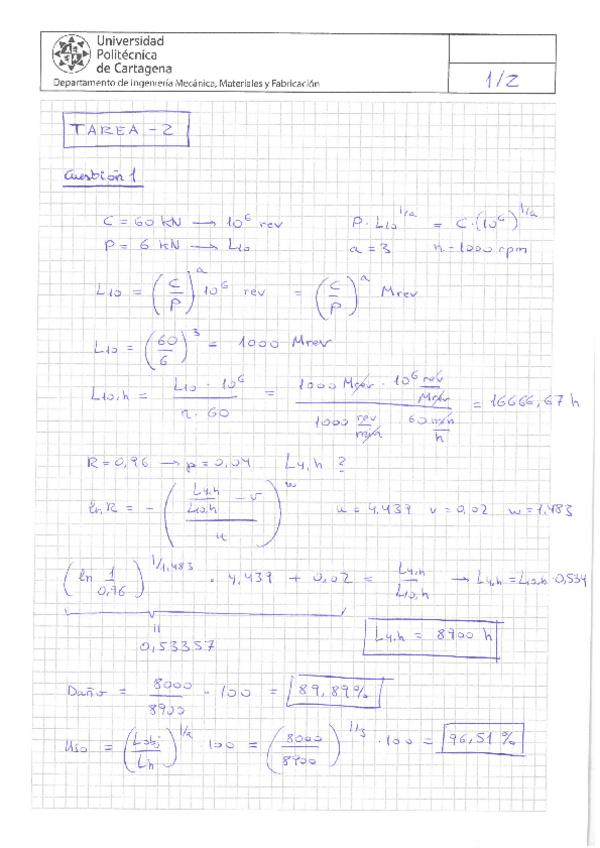 Universidad
Politécnica
de Cartagena
Departamento de Ingeniería Mecánica, Materiales y Fabricación
1/2
TAREA - 2
Cuestión 1
C = 60 kN → 10^6 rev    P · L10^(1/a) = C · (10^6)^(1/a)
P = 6 kN → L10    a = 3    n = 1000 rpm
L10 = (C/P)^a 10^6 rev = (C/P)^a Mrev
L10 = (60/6)^3 = 1000 Mrev
L10,h = (L10 · 10^6)/(n · 60) = (1000 Mrev · 10^6 rev/Mrev)/(1000 rev/min · 60 min/h) = 16666,67 h
R = 0,96 → p = 0,04    L4,h ?
ln R = - ((L4,h/L10,h - v)/u)^w    u = 4,439    v = 0,02    w = 1,483
(ln 1/0,96)^(1/1,483) · 4,439 + 0,02 = L4,h/L10,h → L4,h = L10,h · 0,534
=
0,53357
L4,h = 8900 h
Daño = 8000/8900 · 100 = 89,89%
Uso = (Lobj/Lh)^(1/a) · 100 = (8000/8900)^(1/3) · 100 = 96,51 %